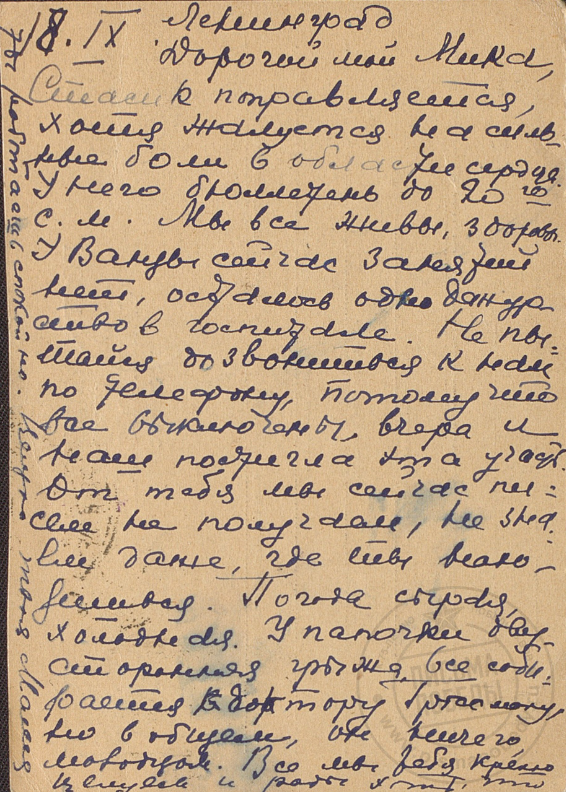 18. IX Ленинград
Дорогой мой Мика,
Стасик поправляется,
хотя жалуется на силь-
ные боли в области сердца.
У него бюллетень до 20го
с. м. Мы все живы, здоровы.
У Ванды сейчас занятий
нет, осталось одно дежур-
ство в госпитале. Не пы-
тайся дозвониться к нам
по телефону, потому что
все выключены, вчера и
наш постигла эта участь.
От тебя мы сейчас пи-
сем не получаем, не зна-
ем даже, где ты нахо-
дишься. Погода сырая,
холодная. У папочки дву-
сторонняя грыжа, все соби-
рается к доктору
но в общем, он ничего,
молодцом. Все мы тебя крепко
целуем и рады что
ты работаешь спокойно. твоя Мама